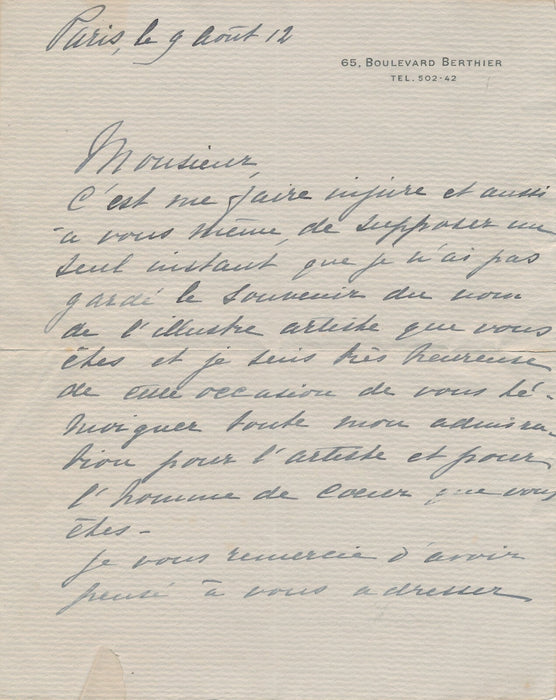 Paris, le 9 Août 12
65, BOULEVARD BERTHIER
TEL. 502-42
Monsieur,
C'est me faire injure et aussi
à vous même, de supposer un
seul instant, que je n'ai pas
gardé le souvenir du nom
de l'illustre artiste que vous
êtes et je suis très heureuse
de cette occasion de vous té-
moigner toute mon admira-
tion pour l'artiste et pour
l'homme de cœur que vous
êtes -
Je vous remercie d'avoir
pensé à vous adresser